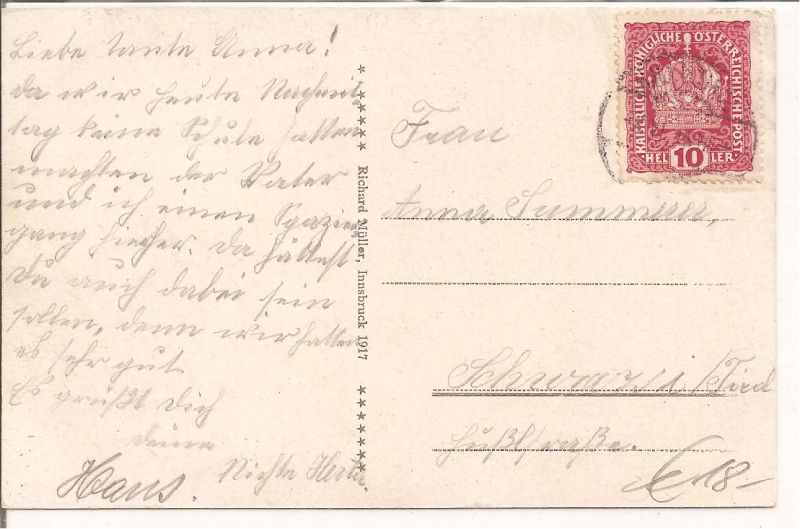 Liebe Tante Anna!
Da wir heute Nachmit
tag keine Schule hatten
machten der Vater
und ich einen Spazier
gang hieher. Da hättest
Du auch dabei sein
sollen, denn wir hatten
es sehr gut
Es grüßt Dich
deine
Nichte Herta.
Hans.
★★★★★★ Richard Müller, Innsbruck 1917 ★★★★★★
KAISERLICHE KÖNIGLICHE ÖSTERREICHISCHE POST
HELLER
10
Frau
Anna Summerer,
Schwaz i/Tirol
straße.
€ 18-